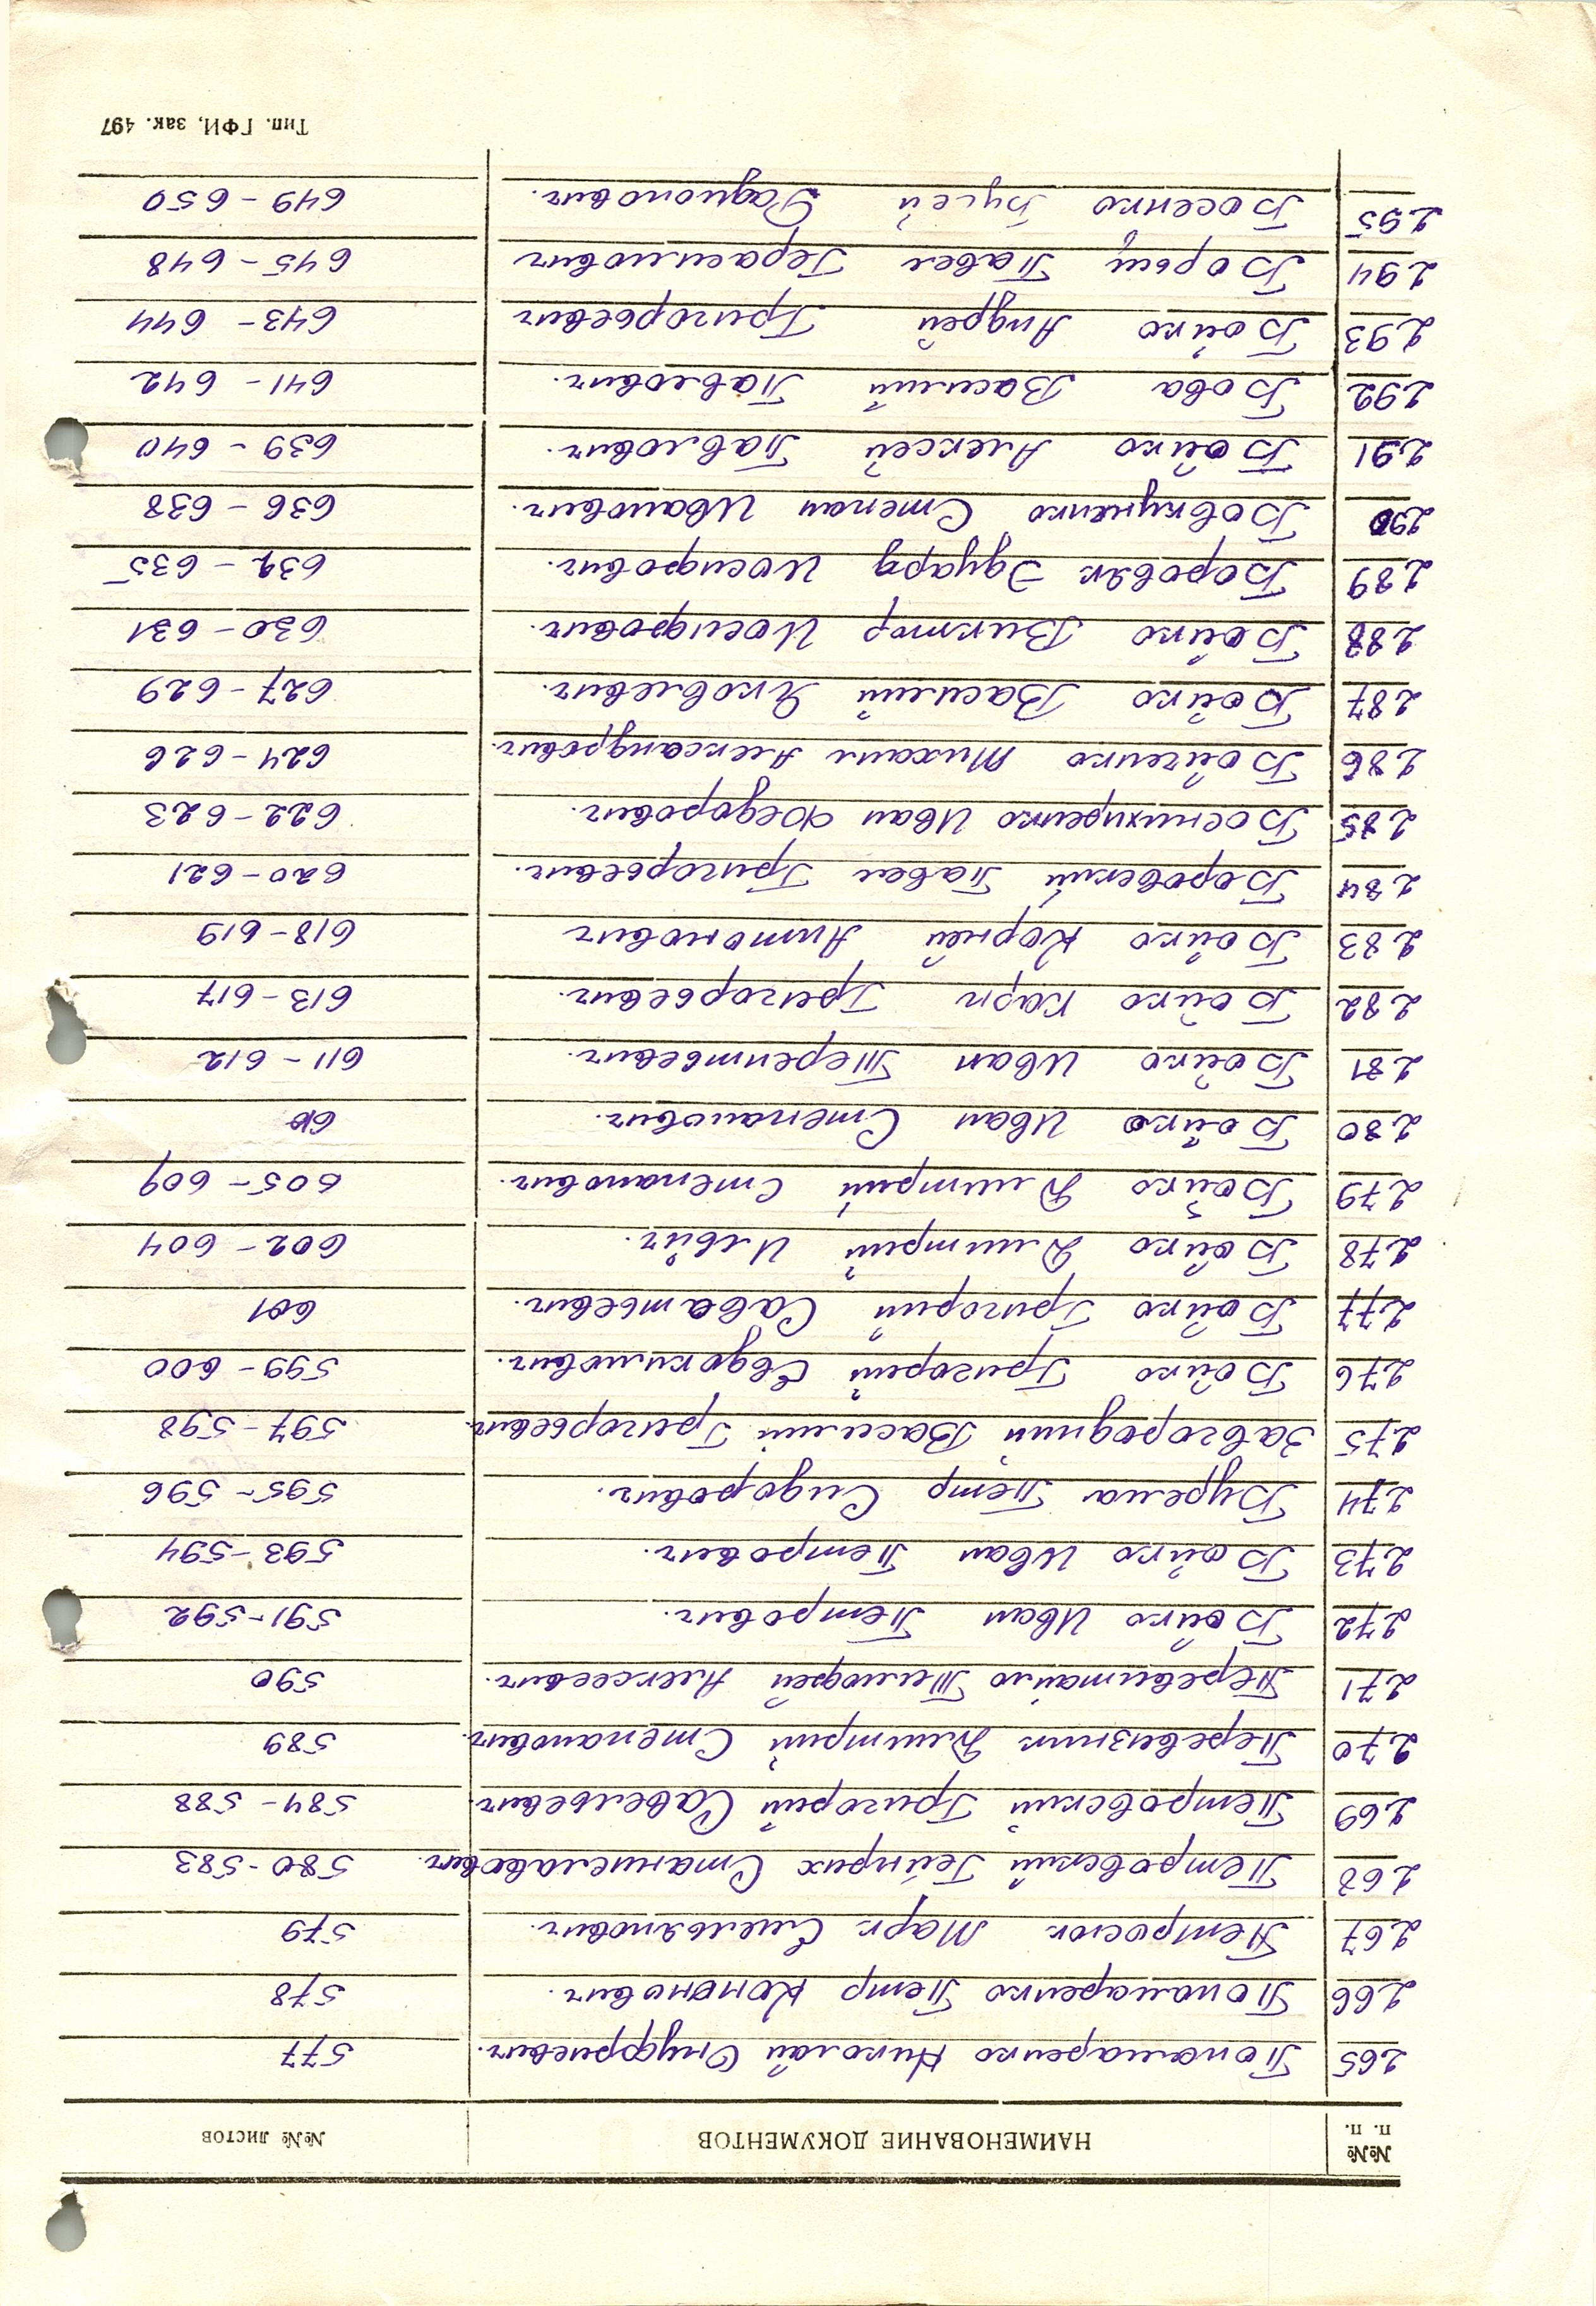 №№ п. п. НАИМЕНОВАНИЕ ДОКУМЕНТОВ №№ листов
265 Пономаренко Николай Онуфриевич. 577
266 Пономаренко Петр Кононович. 578
267 Петросюк Марк Емельянович. 579
268 Петровский Гейнрих Станиславович. 580-583
269 Петровский Григорий Савельевич. 584-588
270 Перевизник Дмитрий Степанович. 589
271 Тимофей Алексеевич. 590
272 Бойко Иван Петрович. 591-592
273 Бойко Иван Петрович. 593-594
274 Бурема Петр Сидорович. 595-596
275 Завгородний Василий Григорьевич. 597-598
276 Бойко Григорий Евдокимович. 599-600
277 Бойко Григорий Саватьевич. 601
278 Бойко Дмитрий Ильич. 602-604
279 Бойко Дмитрий Степанович. 605-609
280 Бойко Иван Степанович.
281 Бойко Иван Терентьевич. 611-612
282 Бойко Карп Григорьевич. 613-617
283 Бойко Корней Антонович 618-619
284 Боровский Павел Григорьевич. 620-621
285 Иван Федорович. 622-623
286 Бойченко Михаил Александрович. 624-626
287 Бойко Василий Яковлевич. 627-629
288 Бойко Виктор Иосифович. 630-631
289 Боровяк Эдуард Иосифович. 632-635
290 Бовкуненко Степан Иванович. 636-638
291 Бойко Алексей Павлович. 639-640
292 Бова Василий Павлович. 641-642
293 Бойко Андрей Григорьевич 643-644
294 Борщ Павел Герасимович 645-648
295 Босенко Радионович. 649-650
Тип. ГФИ, зак. 497